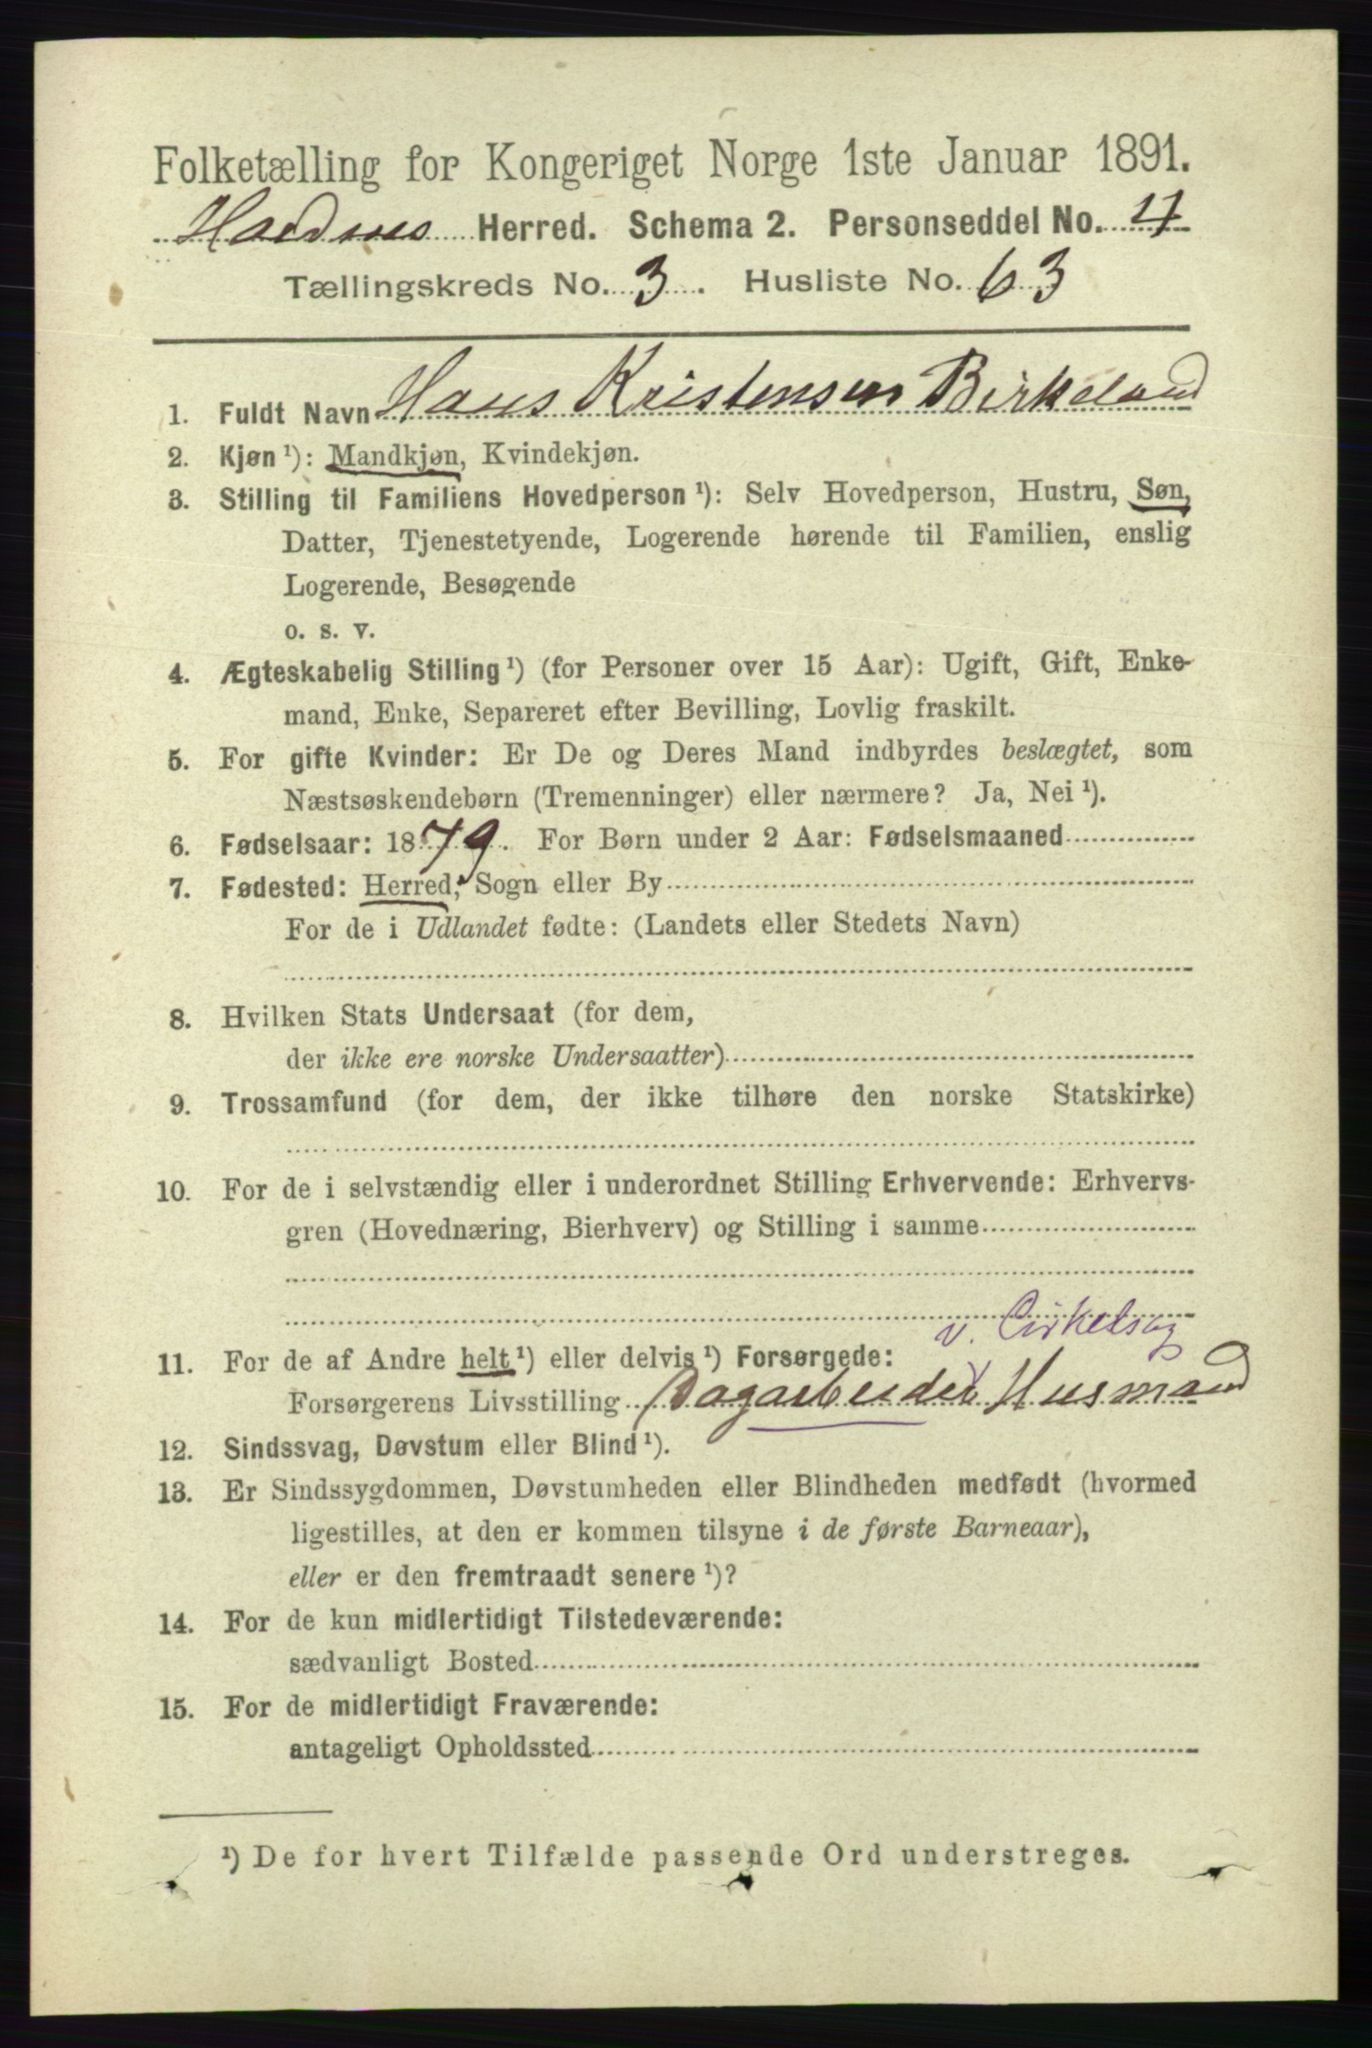 Folketælling for Kongeriget Norge 1ste Januar 1891.
Herred. Schema 2. Personseddel No. 4
Tællingskreds No. 3. Husliste No. 63
1. Fuldt Navn Hans Kristensen Birkeland
2. Kjøn¹): Mandkjøn, Kvindekjøn.
3. Stilling til Familiens Hovedperson¹): Selv Hovedperson, Hustru, Søn,
Datter, Tjenestetyende, Logerende hørende til Familien, enslig
Logerende, Besøgende
o. s. v.
4. Ægteskabelig Stilling¹) (for Personer over 15 Aar): Ugift, Gift, Enke-
mand, Enke, Separeret efter Bevilling, Lovlig fraskilt.
5. For gifte Kvinder: Er De og Deres Mand indbyrdes beslægtet, som
Næstsøskendebørn (Tremenninger) eller nærmere? Ja, Nei¹).
6. Fødselsaar: 1879. For Børn under 2 Aar: Fødselsmaaned
7. Fødested: Herred, Sogn eller By
For de i Udlandet fødte: (Landets eller Stedets Navn)
8. Hvilken Stats Undersaat (for dem,
der ikke ere norske Undersaatter)
9. Trossamfund (for dem, der ikke tilhøre den norske Statskirke)
10. For de i selvstændig eller i underordnet Stilling Erhvervende: Erhvervs-
gren (Hovednæring, Bierhverv) og Stilling i samme
v. Cirkelsag
11. For de af Andre helt¹) eller delvis¹) Forsørgede:
Forsørgerens Livsstilling Dagarbeider Husmand
12. Sindssvag, Døvstum eller Blind¹).
13. Er Sindssygdommen, Døvstumheden eller Blindheden medfødt (hvormed
ligestilles, at den er kommen tilsyne i de første Barneaar),
eller er den fremtraadt senere¹)?
14. For de kun midlertidigt Tilstedeværende:
sædvanligt Bosted
15. For de midlertidigt Fraværende:
antageligt Opholdssted
¹) De for hvert Tilfælde passende Ord understreges.